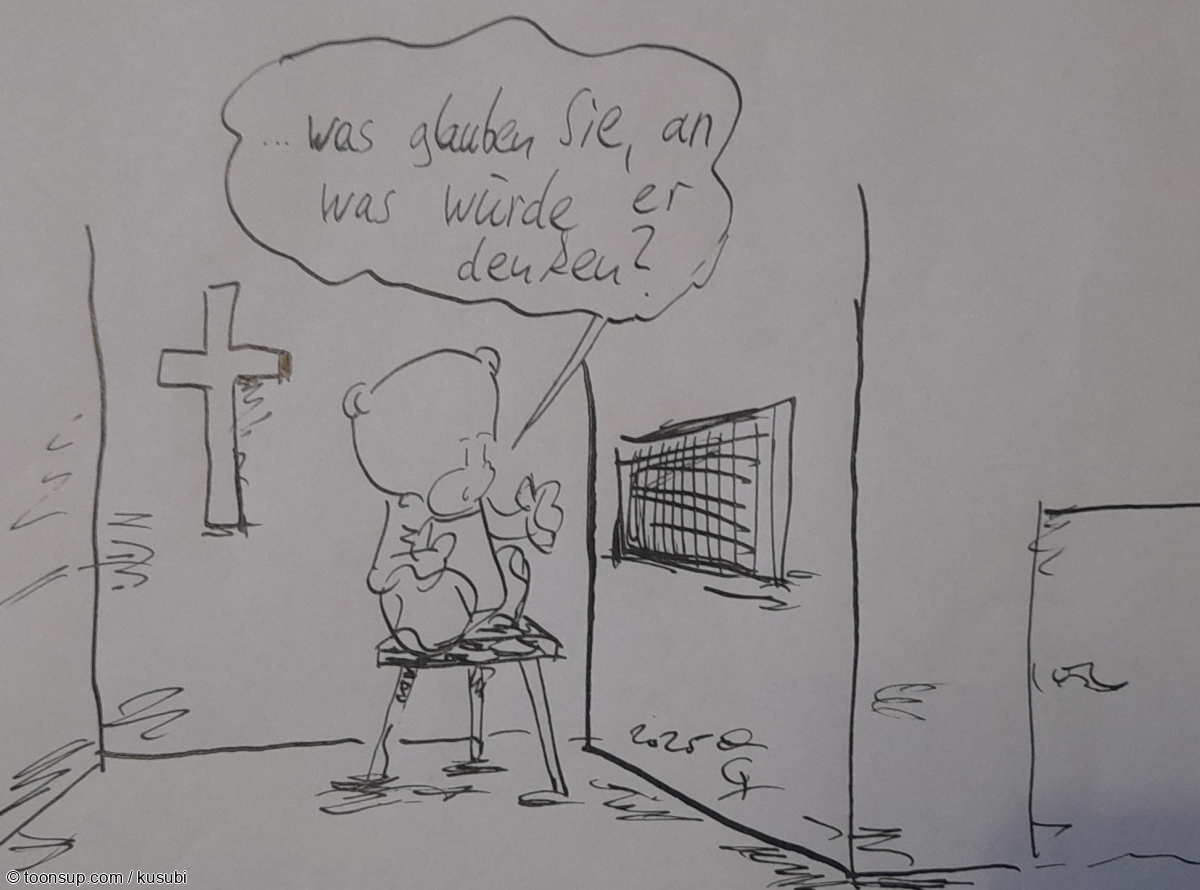 ...was glauben Sie, an
was würde er
denken?
2025
© toonsup.com / kusubi